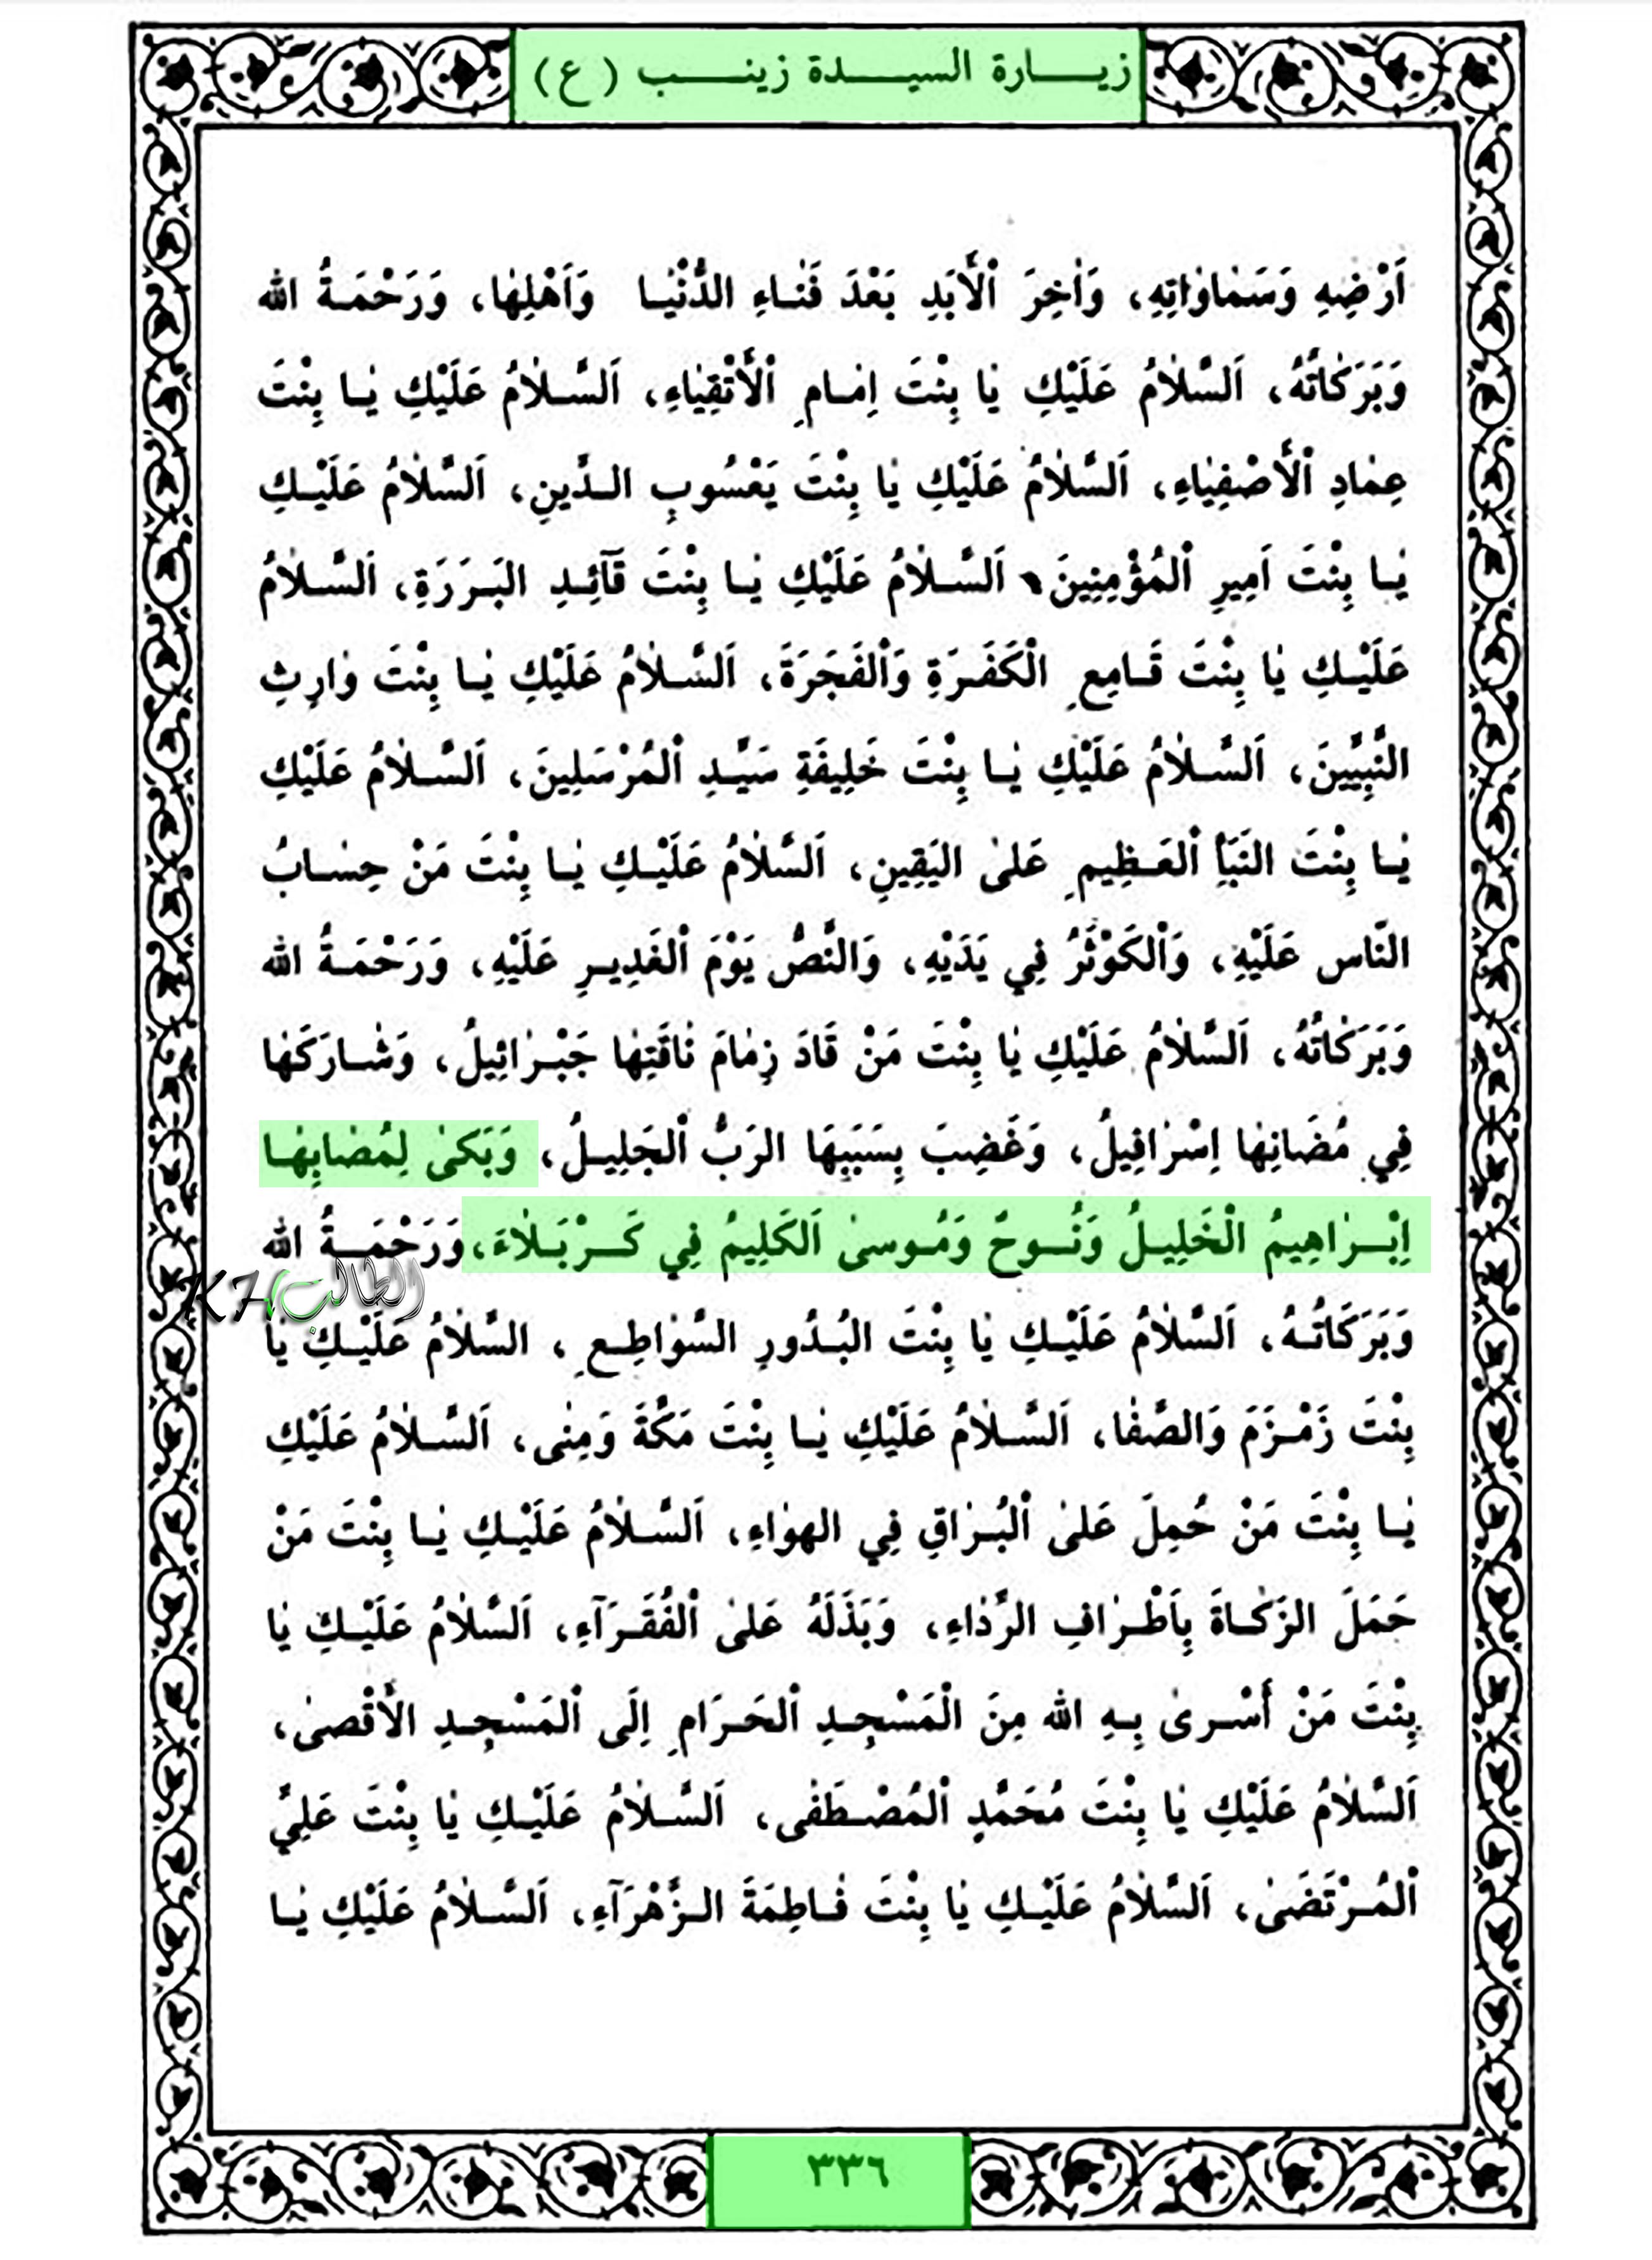 زيـــارة السيـــدة زينـــب (ع)
اَرْضِهِ وَسَمٰاوٰاتِهِ، وَاٰخِرَ اْلأَبَدِ بَعْدَ فَنٰاءِ الدُّنْيٰا وَاَهْلِهٰا، وَرَحْمَةُ الله
وَبَرَكٰاتُهُ، اَلسَّلاٰمُ عَلَيْكِ يٰا بِنْتَ اِمٰامِ اْلأَتْقِيٰاءِ، اَلسَّلاٰمُ عَلَيْكِ يٰا بِنْتَ
عِمٰادِ اْلأَصْفِيٰاءِ، اَلسَّلاٰمُ عَلَيْكِ يٰا بِنْتَ يَعْسُوبِ الدَّينِ، اَلسَّلاٰمُ عَلَيْكِ
يٰا بِنْتَ اَمِيرِ اْلمُؤْمِنِينَ، اَلسَّلاٰمُ عَلَيْكِ يٰا بِنْتَ قَآئِدِ البَرَرَةِ، اَلسَّلاٰمُ
عَلَيْكِ يٰا بِنْتَ قَامِعِ الْكَفَرَةِ وَاْلفَجَرَةَ، اَلسَّلاٰمُ عَلَيْكِ يٰا بِنْتَ وٰارِثِ
النَّبِيَّينَ، اَلسَّلاٰمُ عَلَيْكِ يٰا بِنْتَ خَلِيفَةِ سَيَّدِ اْلمُرْسَلِينَ، اَلسَّلاٰمُ عَلَيْكِ
يٰا بِنْتَ النَبَأِ اْلعَظِيمِ عَلىٰ اليَقِينِ، اَلسَّلاٰمُ عَلَيْكِ يٰا بِنْتَ مَنْ حِسٰابُ
النّاس عَلَيْهِ، وَاْلكَوْثَرُ فِي يَدَيْهِ، وَالنَّصُّ يَوْمَ اْلغَدِيرِ عَلَيْهِ، وَرَحْمَةُ الله
وَبَرَكٰاتُهُ، اَلسَّلاٰمُ عَلَيْكِ يٰا بِنْتَ مَنْ قَادَ زِمٰامَ نٰاقَتِهٰا جَبْرٰائِيلُ، وَشٰارَكَهٰا
فِي مُصَابِهٰا اِسْرٰافِيلُ، وَغَضِبَ بِسَبَبِهَا الرَبُّ اْلجَلِيلُ، وَبَكىٰ لِمُصٰابِهٰا
اِبْرٰاهِيمُ الْخَلِيلُ وَنُوحُ وَمُوسىٰ اَلكَلِيمُ فِي كَرْبَلاٰءَ، وَرَحْمَةُ الله
الطالب KH
وَبَرَكَاتُهُ، اَلسَّلاٰمُ عَلَيْكِ يٰا بِنْتَ البُدُورِ السَّوٰاطِعِ، السَّلاٰمُ عَلَيْكِ يٰا
بِنْتَ زَمْزَمَ وَالصَّفٰا، اَلسَّلاٰمُ عَلَيْكِ يٰا بِنْتَ مَكَّةَ وَمِنٰى، اَلسَّلاٰمُ عَلَيْكِ
يٰا بِنْتَ مَنْ حُمِلَ عَلىٰ اْلبُرٰاقِ فِي الهوٰاءِ، اَلسَّلاٰمُ عَلَيْكِ يٰا بِنْتَ مَنْ
حَمَلَ الزَكٰاةَ بِاَطْرٰافِ الرَّدٰاءِ، وَبَذَلَهُ عَلىٰ اْلفُقَرَآءِ، اَلسَّلاٰمُ عَلَيْكِ يٰا
بِنْتَ مَنْ أَسْرىٰ بِهِ الله مِنَ الْمَسْجِدِ اْلحَرَامِ اِلَى اْلمَسْجِدِ الأَقْصىٰ،
اَلسَّلاٰمُ عَلَيْكِ يٰا بِنْتَ مُحَمَّدٍ اْلمُصْطَفٰى، اَلسَّلاٰمُ عَلَيْكِ يٰا بِنْتَ عَلِيَّ
اْلمُرْتَضَىٰ، اَلسَّلاٰمُ عَلَيْكِ يٰا بِنْتَ فٰاطِمَةَ الزَّهْرَآءِ، اَلسَّلاٰمُ عَلَيْكِ يٰا
٣٣٦